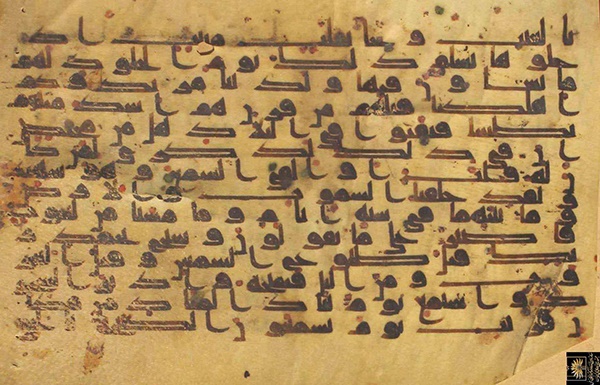 بالغيب و جا بقلب منيب ادخ
لوها بسلم ذلك يوم الخلود لهم
ما يشاون فيها ولدينا مزيد وكم
اهلكنا قبلهم من قرن هم اشد منهم
بطشا فنقبوا في البلد هل من محيص
ان في ذلك لذكرى لمن كا
ن له قلب او القى السمع وهو شهيد
ولقد خلقنا السموت والارض و
ما بينهما في ستة ايام وما مسنا من لغوب
فاصبر على ما يقولون وسبح بحمد ر
بك قبل طلوع الشمس وقبل الغر
وب ومن اليل فسبحه وادبر السجو
د واستمع يوم يناد المناد من مكا
ن قريب يوم يسمعون الصيحة